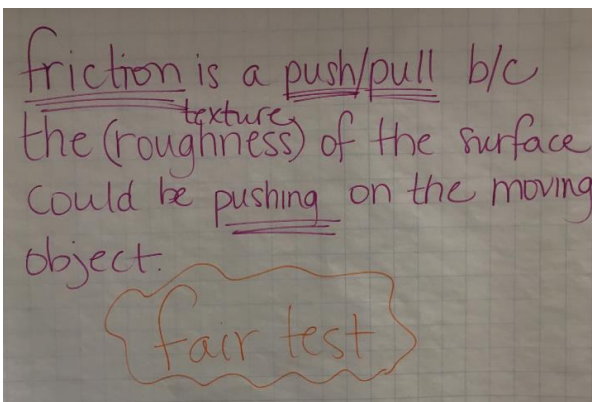 friction is a push/pull b/c
texture
the (roughness) of the surface
could be pushing on the moving
object.
fair test